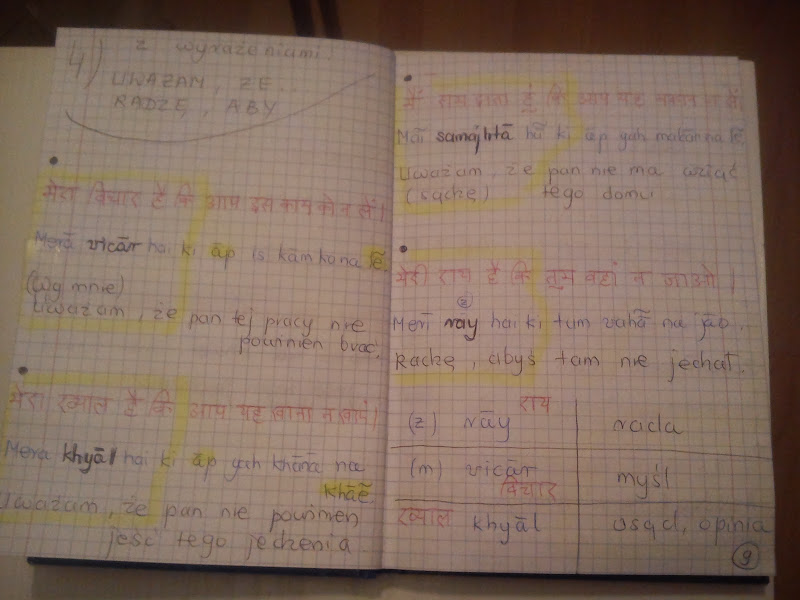 4) z wyrażeniami:
UWAŻAM, ŻE...
RADZĘ, ABY
मेरा विचार है कि आप इस काम को न लें।
Merā vicār hai ki āp is kām ko na lẽ.
(wg mnie)
uważam, że pan tej pracy nie
powinien brać.
मेरा ख्याल है कि आप यह खाना न खायें।
Mera khyāl hai ki āp yah khānā na
khāẽ
uważam, że pan nie powinien
jeść tego jedzenia.
मैं समझता हूँ कि आप यह मकान न लें।
Mãi samajhtā hū̃ ki āp yah makān na lẽ
Uważam, że pan nie ma wziąć
(sądzę) tego domu
मेरी राय है कि तुम वहां न जाओ।
(ż)
Merī rāy hai ki tum vahã na jāo.
Radzę, abyś tam nie jechał.
(ż) rāy राय rada
(m) vicār विचार myśl
ख्याल khyāl osąd, opinia
9